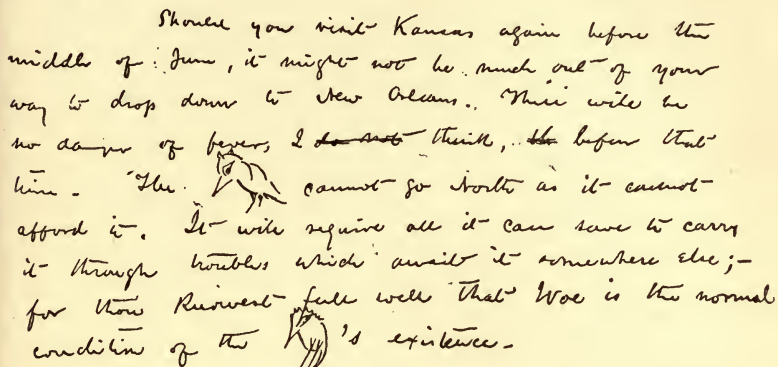 Should you visit Kansas again before the
middle of June, it might not be much out of your
way to drop down to New Orleans. There will be
no danger of fever, I do not think, th before that
time. The cannot go North as it cannot
afford it. It will require all it can save to carry
it through troubles which await it somewhere else;-
for thou knowest full well that Woe is the normal
condition of the 's existence.